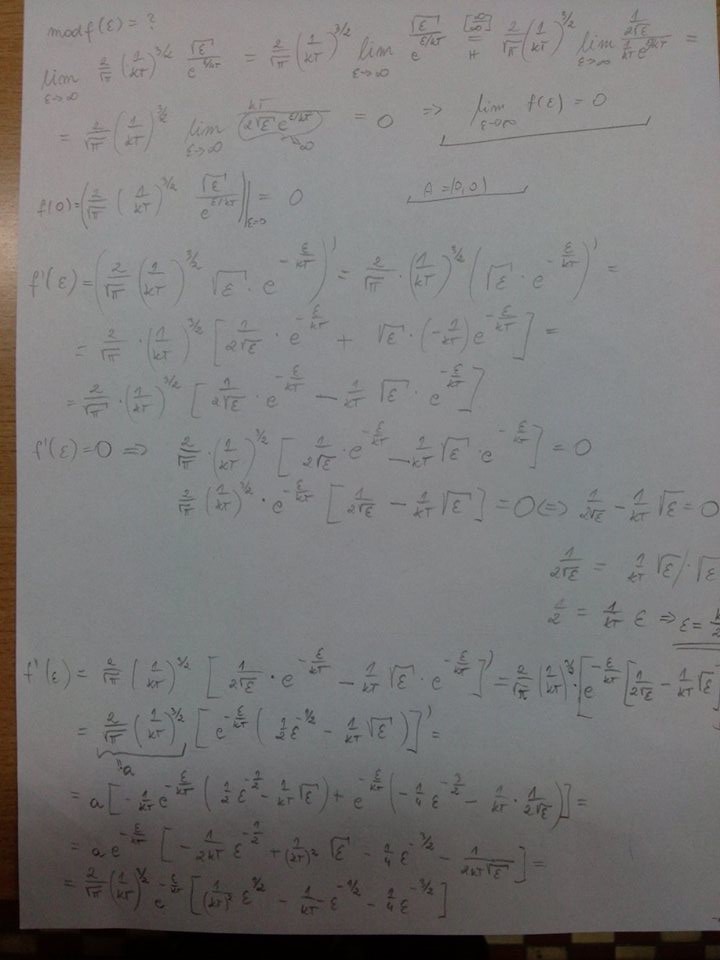 modf(ε) = ?
lim ε→∞ 2/√π (1/kT)^3/2 √ε/e^ε/kT = 2/√π (1/kT)^3/2 lim ε→∞ √ε/e^ε/kT [∞/∞] = H 2/√π (1/kT)^3/2 lim ε→∞ (1/2√ε)/(1/kT e^ε/kT) =
= 2/√π (1/kT)^3/2 lim ε→∞ kT/(2√ε e^ε/kT) → ∞ = 0 ⇒ lim ε→∞ f(ε) = 0
f(0) = (2/√π (1/kT)^3/2 √ε/e^ε/kT)|ε=0 = 0 A = (0,0)
f'(ε) = (2/√π (1/kT)^3/2 √ε · e^-ε/kT)' = 2/√π · (1/kT)^3/2 (√ε · e^-ε/kT)' =
= 2/√π · (1/kT)^3/2 [1/2√ε · e^-ε/kT + √ε · (-1/kT) e^-ε/kT] =
= 2/√π · (1/kT)^3/2 [1/2√ε · e^-ε/kT - 1/kT √ε · e^-ε/kT]
f'(ε) = 0 ⇒ 2/√π · (1/kT)^3/2 [1/2√ε · e^-ε/kT - 1/kT √ε · e^-ε/kT] = 0
2/√π (1/kT)^3/2 · e^-ε/kT [1/2√ε - 1/kT √ε] = 0 ⇔ 1/2√ε - 1/kT √ε = 0
1/2√ε = 1/kT √ε /· √ε
1/2 = 1/kT ε ⇒ ε = k/2
f'(ε) = 2/√π (1/kT)^3/2 [1/2√ε · e^-ε/kT - 1/kT √ε · e^-ε/kT]' = 2/√π (1/kT)^3/2 · [e^-ε/kT [1/2√ε - 1/kT √ε]
= 2/√π (1/kT)^3/2 [e^-ε/kT (1/2 ε^-1/2 - 1/kT √ε)]' =
:a
= a [-1/kT e^-ε/kT (1/2 ε^-1/2 - 1/kT √ε) + e^-ε/kT (-1/4 ε^-3/2 - 1/kT · 1/2√ε)] =
= a e^-ε/kT [-1/2kT ε^-1/2 + 1/(kT)² √ε - 1/4 ε^-3/2 - 1/2kT√ε] =
= 2/√π (1/kT)^3/2 e^-ε/kT [(1/kT)² ε^1/2 - 1/kT ε^-1/2 - 1/4 ε^-3/2]